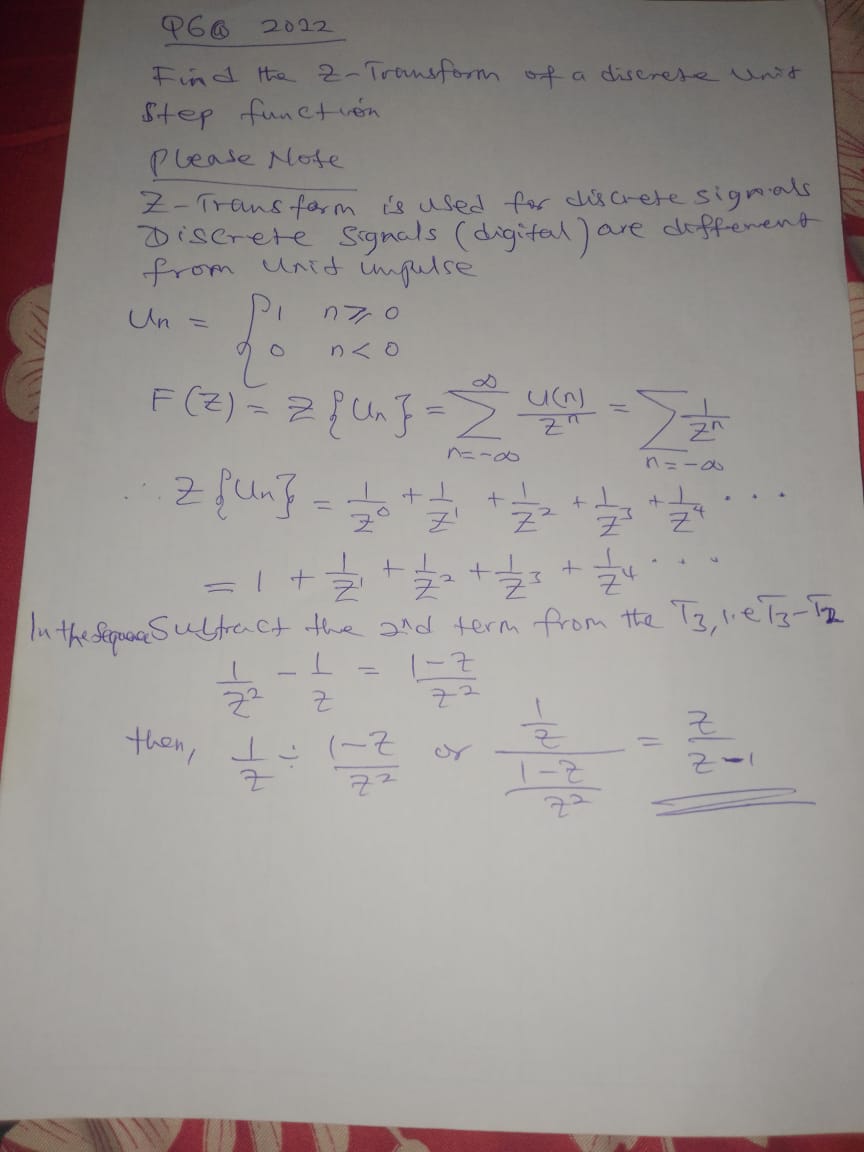 Q6(a) 2022
Find the Z-Transform of a discrete unit
Step function
Please Note
Z-Transform is used for discrete signals
Discrete Signals (digital) are different
from Unit impulse
Un = { 1 n ≥ 0
0 n < 0
F(Z) = Z{Un} = ∑_{n=-∞}^{∞} U(n)/Z^n = ∑_{n=-∞} 1/Z^n
∴ Z{Un} = 1/Z^0 + 1/Z^1 + 1/Z^2 + 1/Z^3 + 1/Z^4 ...
= 1 + 1/Z^1 + 1/Z^2 + 1/Z^3 + 1/Z^4 ...
In the Sequence Subtract the 2nd term from the T3, i.e T3-T2
1/Z^2 - 1/Z = (1-Z)/Z^2
then, 1/Z ÷ (1-Z)/Z^2 or (1/Z)/((1-Z)/Z^2) = Z/(Z-1)